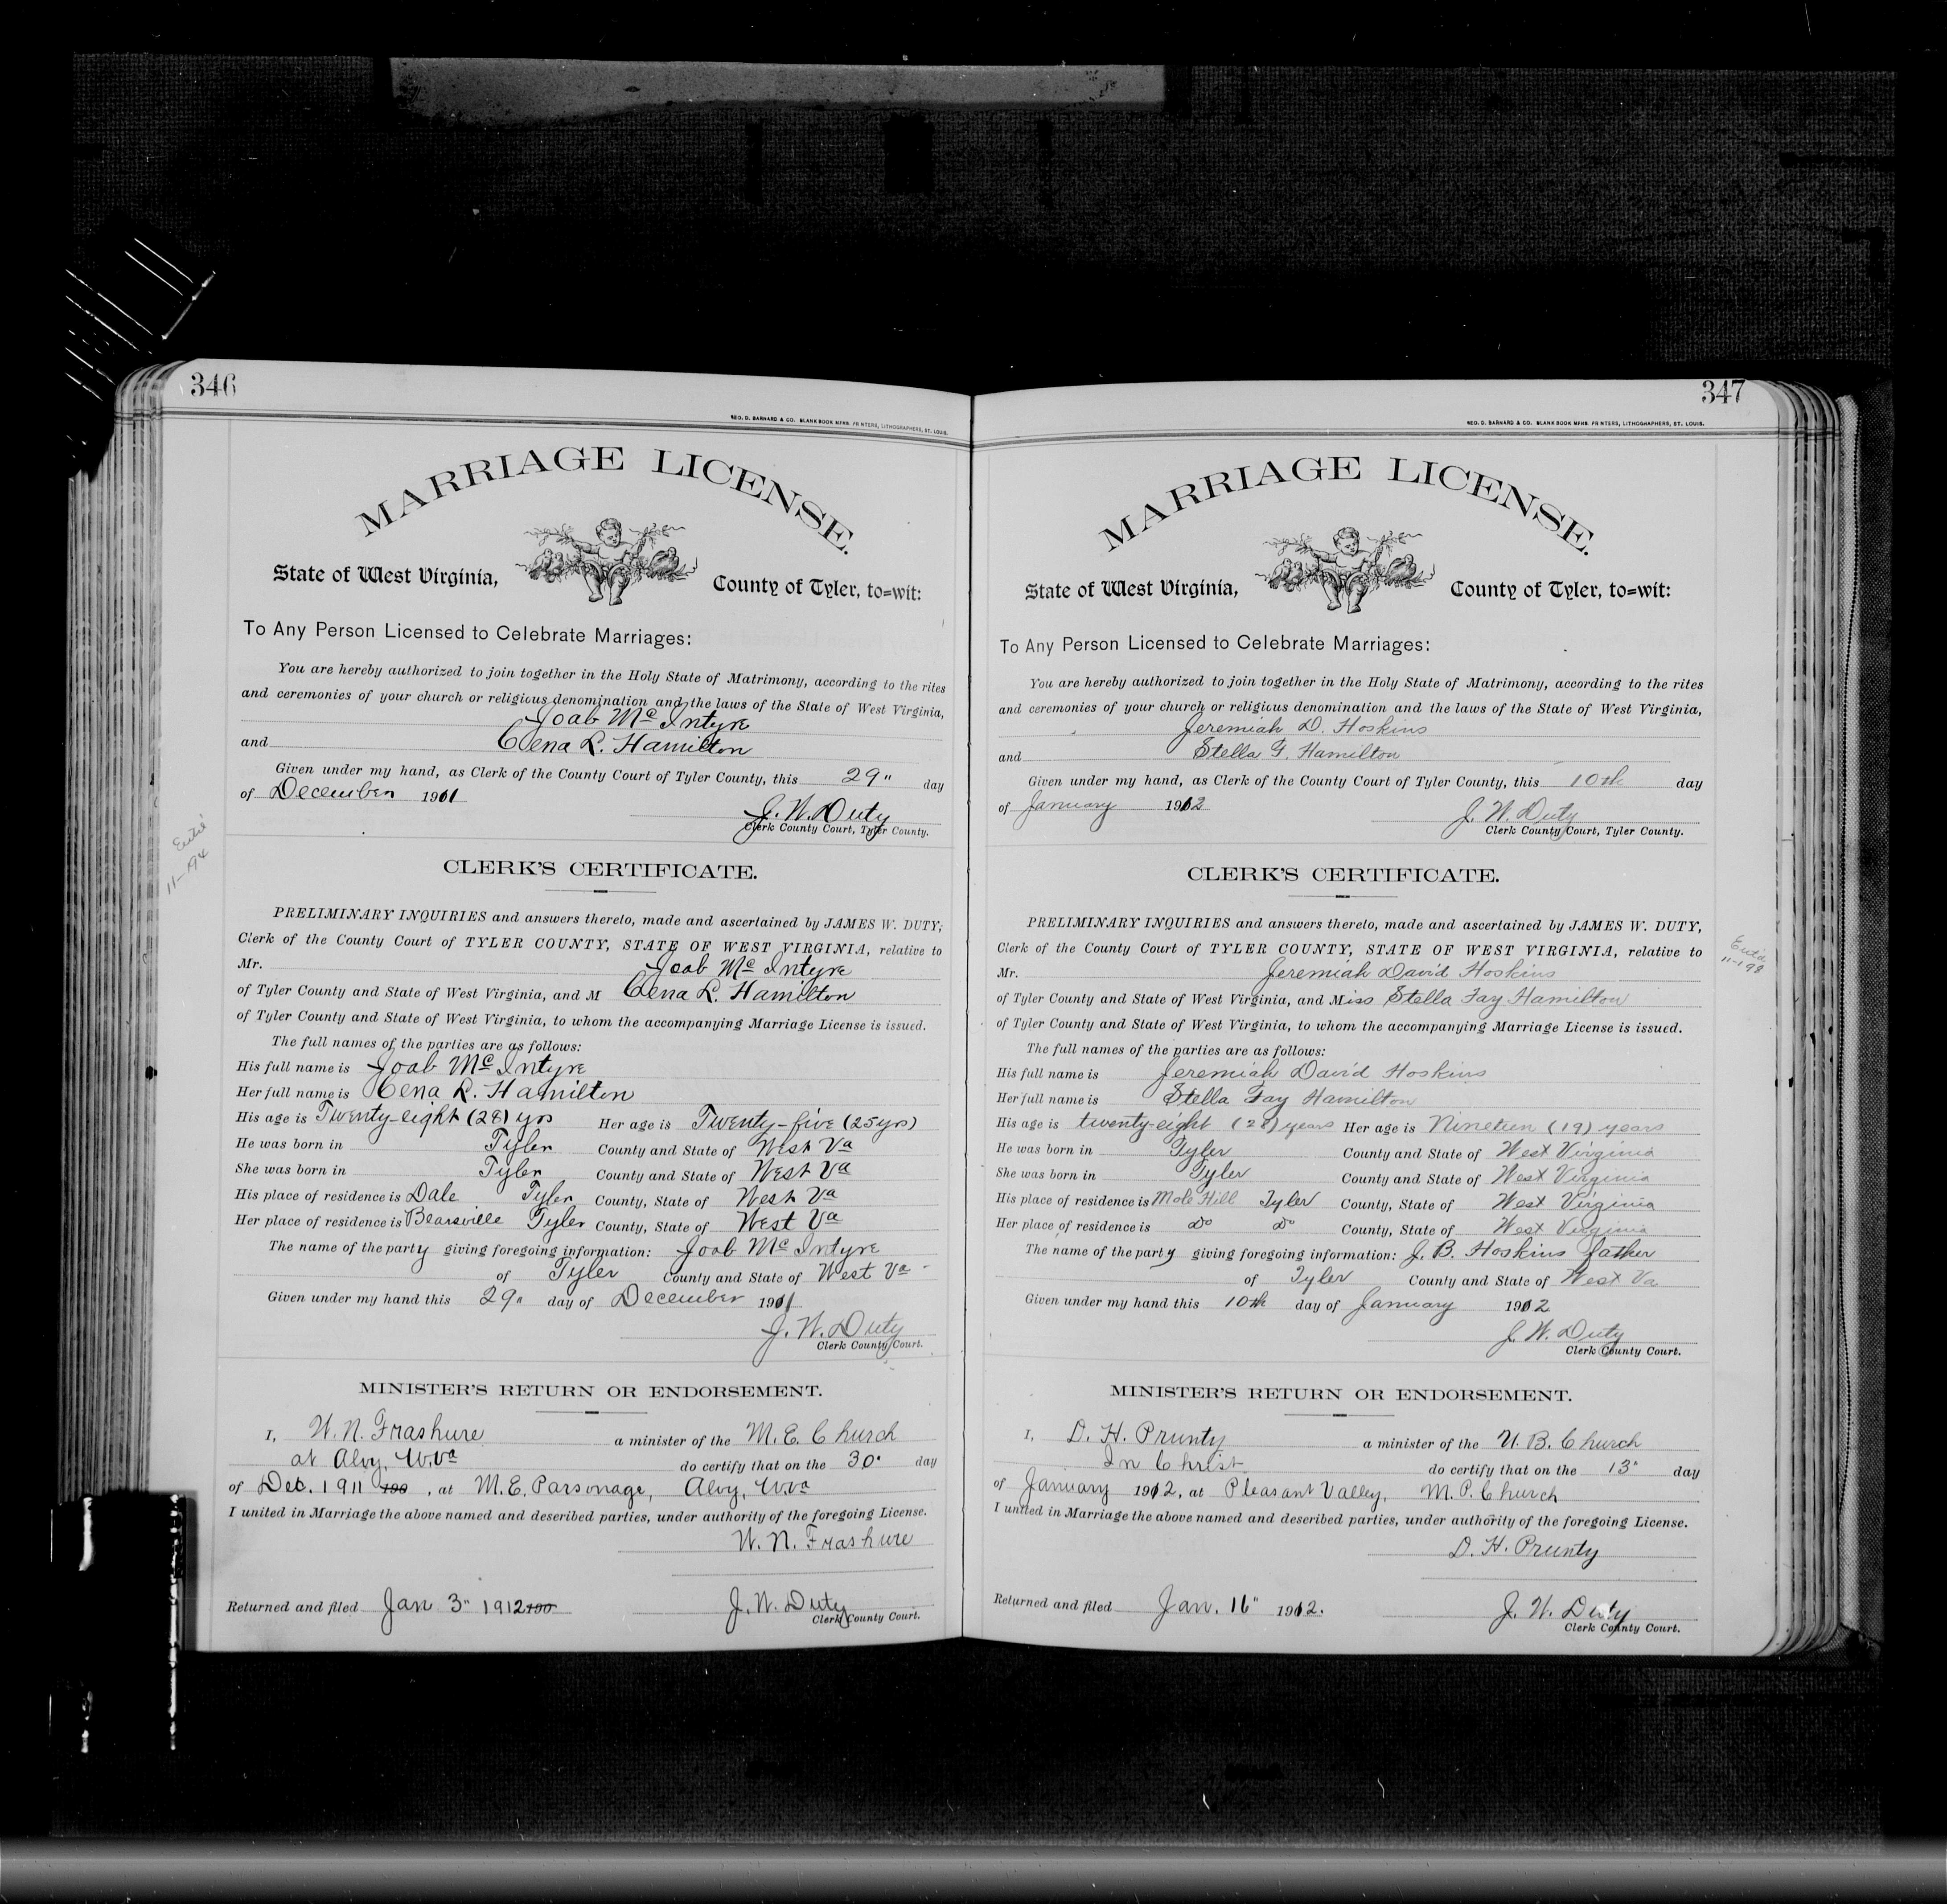 346
GEO. D. BARNARD & CO. BLANK BOOK MFRS. PRINTERS, LITHOGRAPHERS, ST. LOUIS.
MARRIAGE LICENSE.
State of West Virginia, County of Tyler, to=wit:
To Any Person Licensed to Celebrate Marriages:
You are hereby authorized to join together in the Holy State of Matrimony, according to the rites
and ceremonies of your church or religious denomination and the laws of the State of West Virginia,
Joab Mc Intyre
and Cena L. Hamilton
Given under my hand, as Clerk of the County Court of Tyler County, this 29" day
of December 1911
J. W. Duty
Clerk County Court, Tyler County.
11-194
CLERK'S CERTIFICATE.
PRELIMINARY INQUIRIES and answers thereto, made and ascertained by JAMES W. DUTY,
Clerk of the County Court of TYLER COUNTY, STATE OF WEST VIRGINIA, relative to
Mr. Joab Mc Intyre
of Tyler County and State of West Virginia, and M Cena L. Hamilton
of Tyler County and State of West Virginia, to whom the accompanying Marriage License is issued.
The full names of the parties are as follows:
His full name is Joab Mc Intyre
Her full name is Cena L. Hamilton
His age is Twenty-eight (28) yrs Her age is Twenty-five (25 yrs)
He was born in Tyler County and State of West Va
She was born in Tyler County and State of West Va
His place of residence is Dale Tyler County, State of West Va
Her place of residence is Bearsville Tyler County, State of West Va
The name of the party giving foregoing information: Joab Mc Intyre
of Tyler County and State of West Va
Given under my hand this 29" day of December 1911
J. W. Duty
Clerk County Court.
MINISTER'S RETURN OR ENDORSEMENT.
I, W. N. Frashure a minister of the M. E. Church
at Alvy, W.Va do certify that on the 30" day
of Dec. 1911 190 , at M. E. Parsonage, Alvy, W.Va
I united in Marriage the above named and deseribed parties, under authority of the foregoing License.
W. N. Frashure
Returned and filed Jan 3" 1912 190 J. W. Duty
Clerk County Court.
347
GEO. D. BARNARD & CO. BLANK BOOK MFRS. PRINTERS, LITHOGRAPHERS, ST. LOUIS.
MARRIAGE LICENSE.
State of West Virginia, County of Tyler, to=wit:
To Any Person Licensed to Celebrate Marriages:
You are hereby authorized to join together in the Holy State of Matrimony, according to the rites
and ceremonies of your church or religious denomination and the laws of the State of West Virginia,
Jeremiah D. Hoskins
and Stella F. Hamilton
Given under my hand, as Clerk of the County Court of Tyler County, this 10th day
of January 1912
J. W. Duty
Clerk County Court, Tyler County.
CLERK'S CERTIFICATE.
PRELIMINARY INQUIRIES and answers thereto, made and ascertained by JAMES W. DUTY,
Clerk of the County Court of TYLER COUNTY, STATE OF WEST VIRGINIA, relative to
Mr. Jeremiah David Hoskins
of Tyler County and State of West Virginia, and Miss Stella Fay Hamilton
of Tyler County and State of West Virginia, to whom the accompanying Marriage License is issued.
The full names of the parties are as follows:
His full name is Jeremiah David Hoskins
Her full name is Stella Fay Hamilton
His age is twenty-eight (28) years Her age is Nineteen (19) years
He was born in Tyler County and State of West Virginia
She was born in Tyler County and State of West Virginia
His place of residence is Mole Hill Tyler County, State of West Virginia
Her place of residence is Do Do County, State of West Virginia
The name of the party giving foregoing information: J. B. Hoskins father
of Tyler County and State of West Va
Given under my hand this 10th day of January 1912
J. W. Duty
Clerk County Court.
MINISTER'S RETURN OR ENDORSEMENT.
I, D. H. Prunty a minister of the U. B. Church
In Christ do certify that on the 13" day
of January 1912, at Pleasant Valley, M. P. Church
I united in Marriage the above named and deseribed parties, under authority of the foregoing License.
D. H. Prunty
Returned and filed Jan. 16" 1912. J. W. Duty
Clerk County Court.